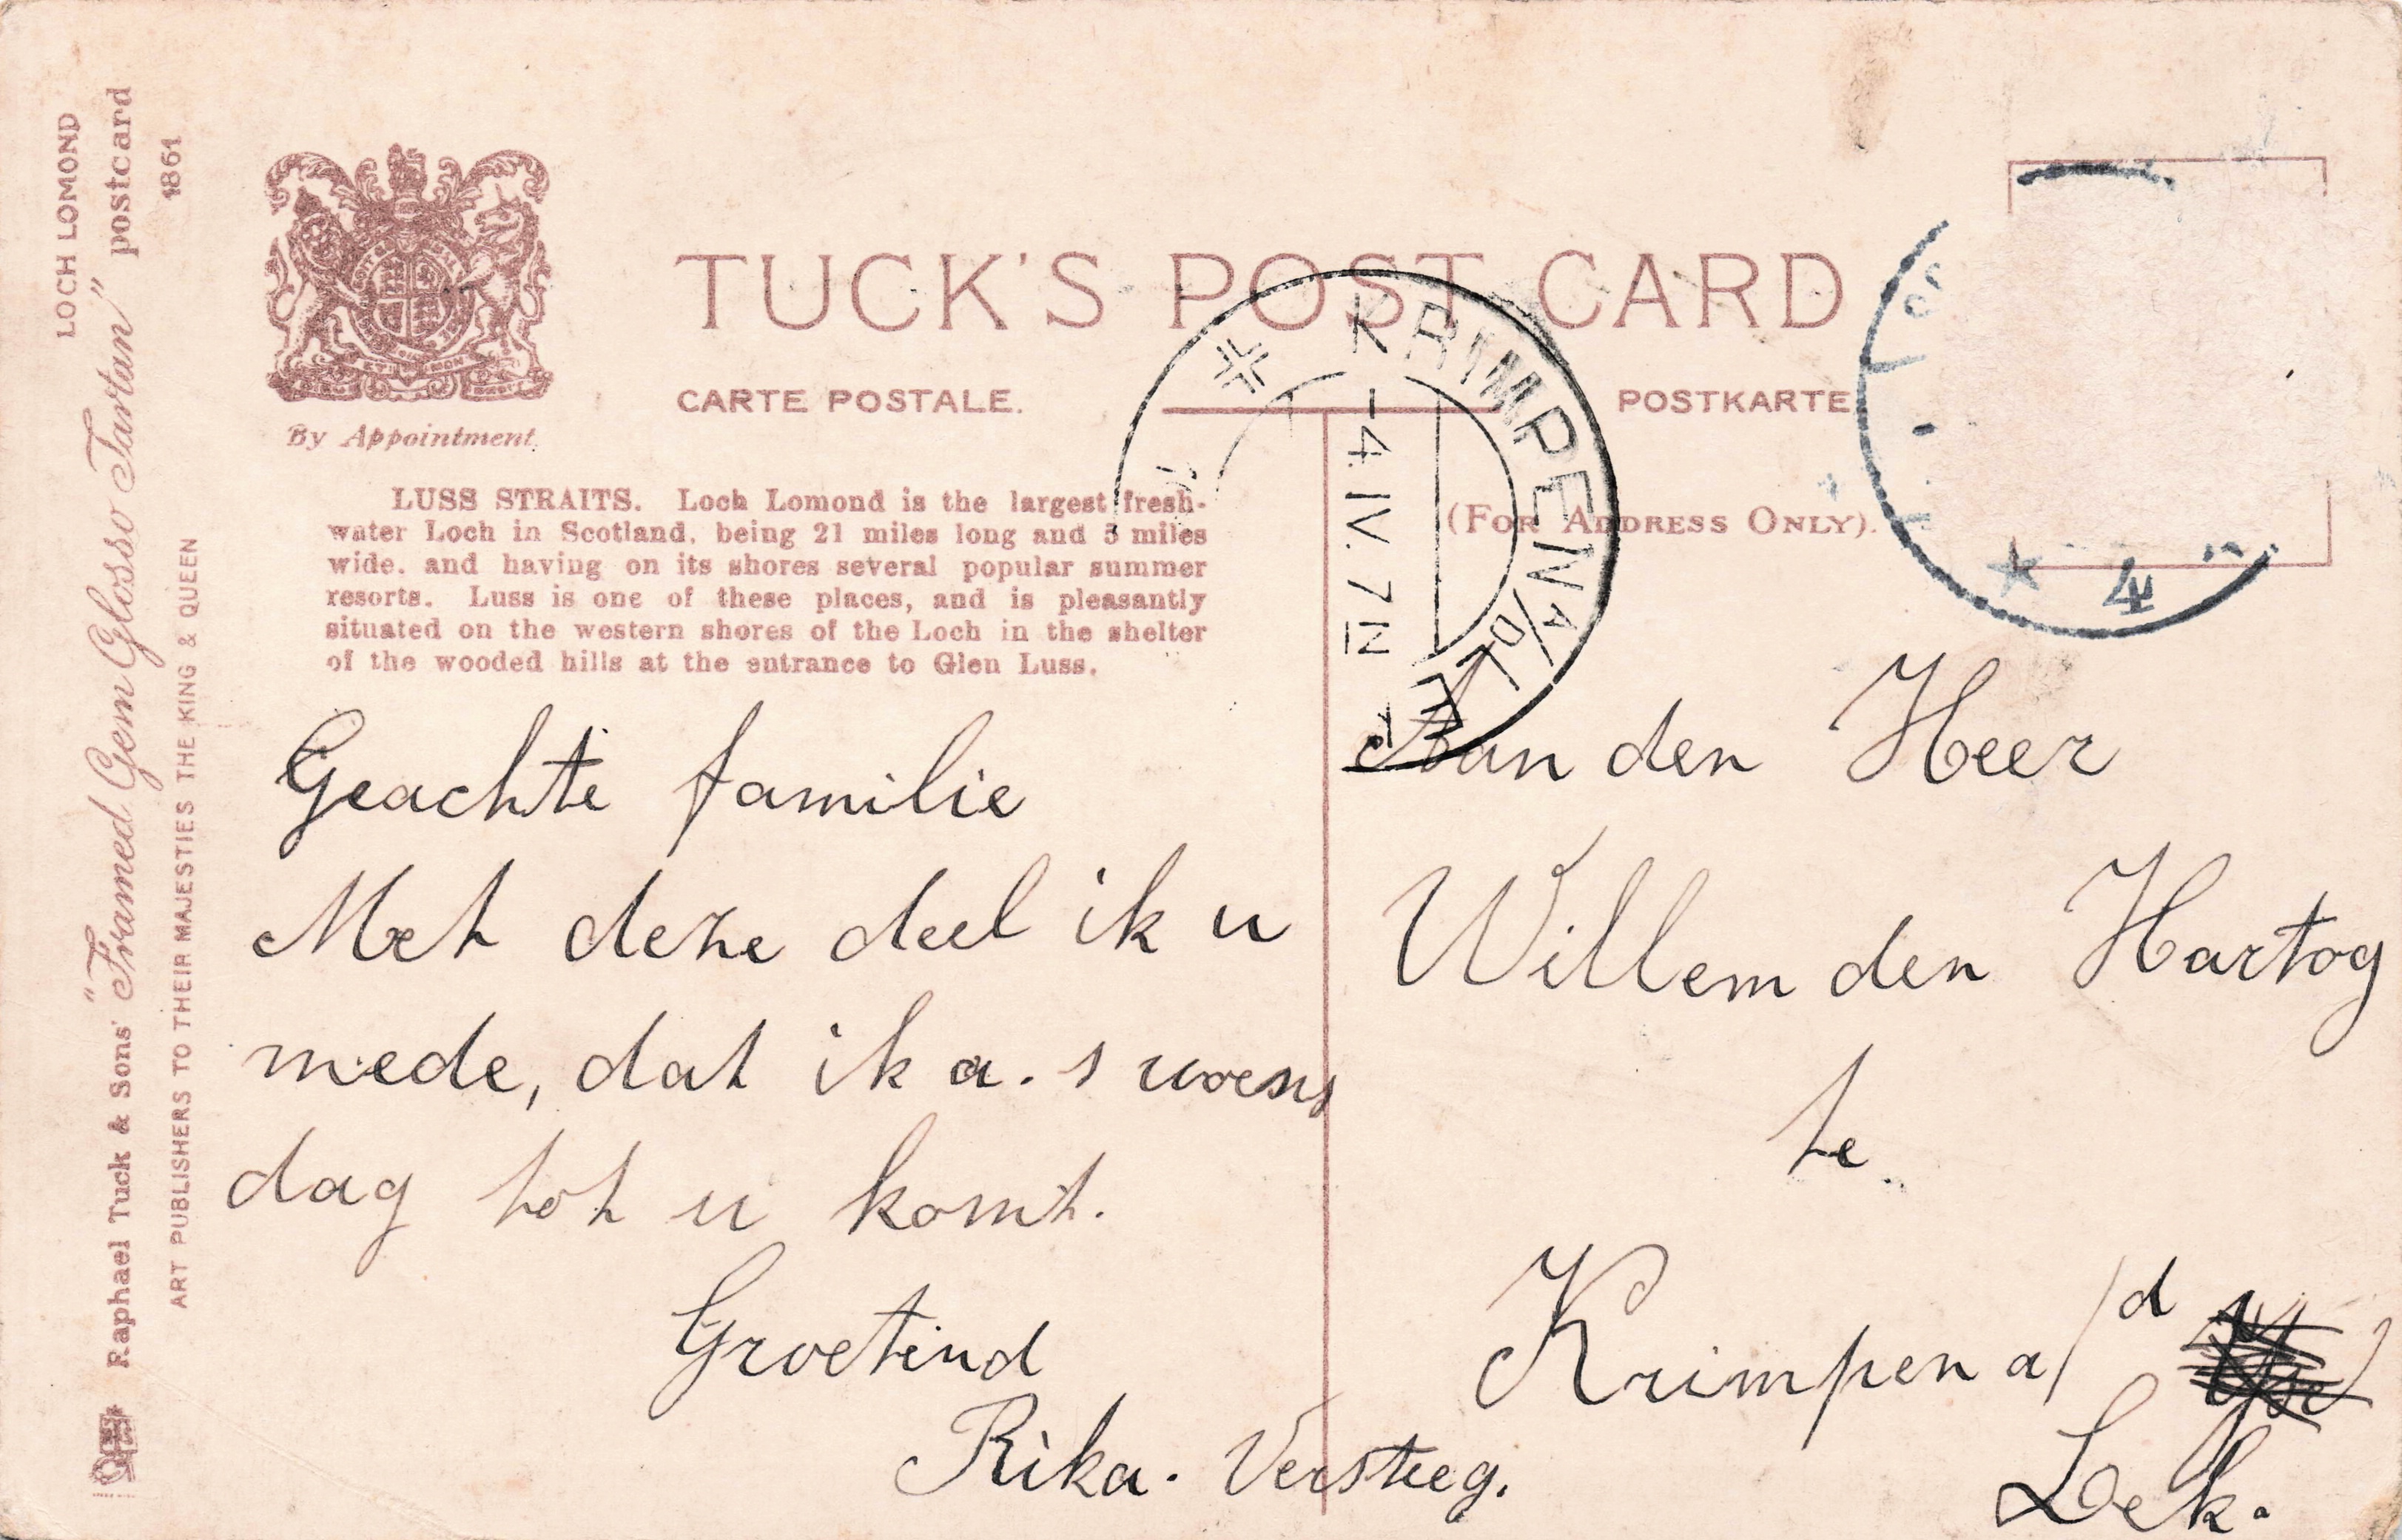 LOCH LOMOND
Raphael Tuck & Sons' "Framed Gem Glosso Tartan" postcard
1861
ART PUBLISHERS TO THEIR MAJESTIES THE KING & QUEEN
By Appointment.
TUCK'S POST CARD
CARTE POSTALE.
POSTKARTE
(FOR ADDRESS ONLY).
LUSS STRAITS. Loch Lomond is the largest fresh-
water Loch in Scotland, being 21 miles long and 5 miles
wide, and having on its shores several popular summer
resorts. Luss is one of these places, and is pleasantly
situated on the western shores of the Loch in the shelter
of the wooded hills at the entrance to Glen Luss.
KRIMPEN A/D LEK
-4 IV. 7 N
4
Geachte familie
Met deze deel ik u
mede, dat ik a.s woens
dag tot u komt.
Groetend
Rika. Versteeg.
Aan den Heer
Willem den Hartog
te.
Krimpen a/d
Lek.